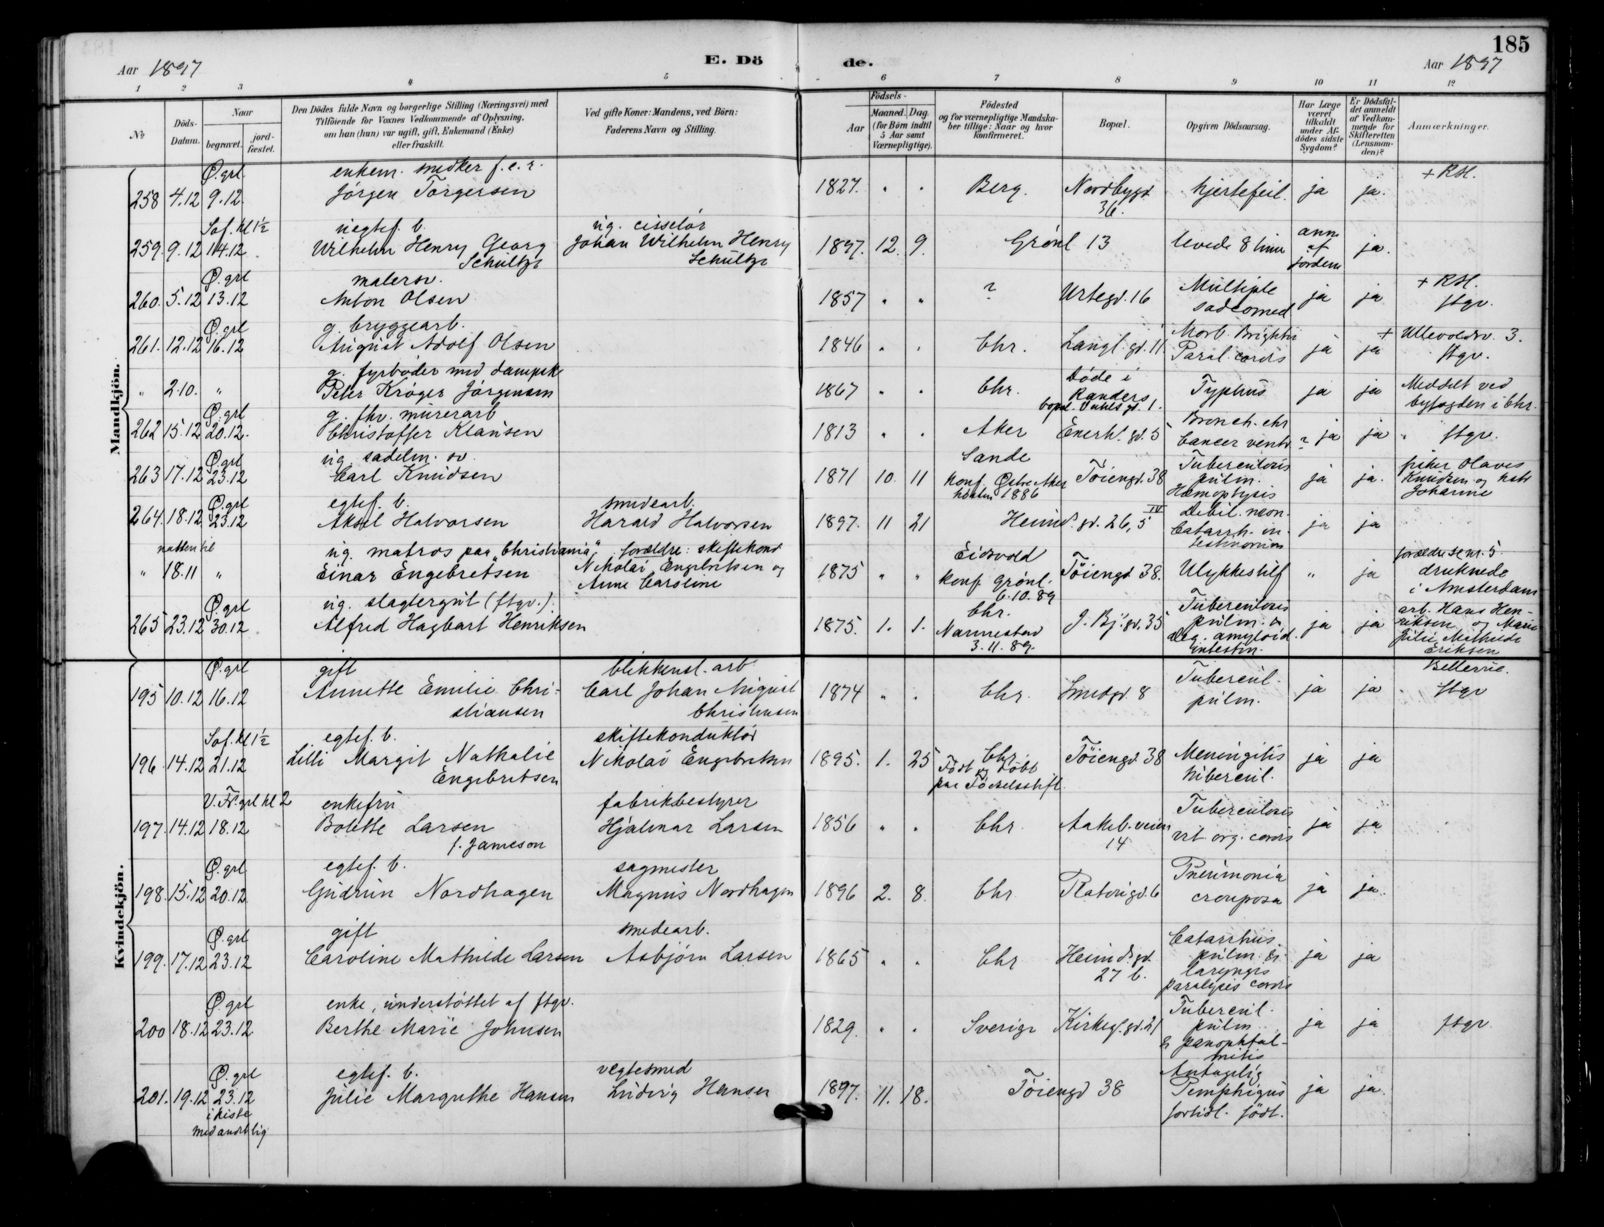 185
Aar 1897
E. Dö
de.
Aar 1897
1 2 3 4 5 6 7 8 9 10 11 12
No
Döds-Datum.
Naar
begravet.
jord-fæstet.
Den Dödes fulde Navn og borgerlige Stilling (Næringsvei) med
Tilföiende for Voxnes Vedkommende af Oplysning,
om han (hun) var ugift, gift, Enkemand (Enke)
eller fraskilt.
Ved gifte Koner: Mandens, ved Börn:
Faderens Navn og Stilling.
Födsels-
Aar
Maaned. Dag.
(for Börn indtil
5 Aar samt
Værnepligtige).
Födested
og for værnepligtige Mandska-
ber tillige: Naar og hvor
konfirmeret.
Bopæl.
Opgiven Dödsaarsag.
Har Læge
været
tilkaldt
under Af-
dödes sidste
Sygdom?
Er Dödsfal-
det anmeldt
af Vedkom-
mende for
Skifteretten
(Lensman-
den)?
Anmærkninger.
Mandkjön.
Ø. grl enkem. snedker f.e.r. + RH.
258 4.12 9.12 Jørgen Torgersen 1827 " " Berg. Nordbygd. 36. hjertefeil. ja ja.
Sof. kl 1½ uegtef. b. ug. ciselør
259. 9.12 14.12 Wilhelm Henry Georg Schultze Johan Wilhelm Henry Schultze 1897. 12. 9. Grønl 13 levede 8 timer ann. af jordem ja.
Ø. grl malersv. + RH.
260. 5.12 13.12 Anton Olsen 1857 " " ? Urtegd. 16 Multiple ja ja ftgv.
Ø. grl g. bryggearb.
261. 12.12 16.12 August Adolf Olsen 1846 " " Chr. Langl. gd. 11 Morb. Brightii Paral. cordis ja ja + Ullevoldsv. 3. ftgv.
g. fyrbøder med dampsk
" 2.10. " Peter Krøger Jørgensen 1867 " " Chr. Døde i Randers bopæl. gd. 1. Typhus ja ja Meddelt ved byfogden i Chr.
Ø. grl g. fhv. murerarb
262 15.12 20.12. Christoffer Klausen 1813 " " Aker Enerhl. gd. 5 Bronch. chr Cancer ventr. ? ja ja " ftgv.
Ø. grl ug. sadelm. sv.
263 17.12 23.12 Carl Knudsen 1871 10. 11 Sande konf. Østre Aker høsten 1886 Töiengd. 38 Tuberculosis pulm. Hæmoptysis ja ja. Olaves Knudsen og Johanne
Ø. grl egtef. b. smedearb.
264. 18.12 23.12 Aksel Halvorsen Harald Halvorsen 1897. 11 21 Heimd. gd. 26, 5 IV Debil. neon. Catarrh. intestinorum ja ja
natten til ug. matros paa "Christiania" forældre: skiftekond
" 18.11 " Einar Engebretsen Nikolai Engebretsen og Anne Caroline 1875 " " Eidsvold konf Grønl. 6.10.89 Töiengd 38. Ulykkestilf " ja forældre se nr. 5 druknede i Amsterdam
Ø. grl ug. slagtergut (ftgv.)
265 23.12 30.12 Alfred Hagbart Henriksen 1875. 1. 1. Chr. Nannestad 3.11.89 J. Bj. gd. 35 Tuberculosis pulm. & Deg. amyloid. intestin. ja ja arb. Hans Henriksen og Marie Julie Mathilde Eriksen
Kvindekjön.
Ø. grl gift blikkensl. arb Bellevue.
195 10.12 16.12 Annette Emilie Christiansen Carl Johan August Christiansen 1874 " " Chr. Smedgd. 8 Tubercul. pulm. ja ja " ftgv
Sof. kl 1½ egtef. b. skiftekonduktør
196 14.12 21.12 Lilli Margit Nathalie Engebretsen Nikolai Engebretsen 1895. 1. 25 Chr. Født og døbt paa Fødselsstift. Töiengd 38 Meningitis tubercul. ja ja
V. Fr. grl kl 2 enkefru fabrikbestyrer
197. 14.12 18.12 Bolette Larsen f. Jameson Hjalmar Larsen 1856 " " Chr. Aakeb. veien 14 Tuberculosis vit. org. cordis ja ja
Ø. grl egtef. b. sagmester
198. 15.12 20.12 Gudrun Nordhagen Magnus Nordhagen 1896 2. 8. Chr Ratvigd. 6 Pneumonia crouposa ja ja.
Ø. grl gift smedearb.
199. 17.12 23.12 Caroline Mathilde Larsen Asbjørn Larsen 1865 " " Chr Heimd. gd. 27 b. Catarrhus pulm. & laryngis paralysis cordis ja ja
Ø. grl enke, understøttet af ftgv.
200 18.12 23.12 Berthe Marie Johnsen 1829. " " Sverige Kirkeg. gd. 21 Tubercul. pulm. & panophtalmitis ja ja ftgv.
Ø. grl egtef. b. vegtesmed
201. 19.12 23.12 Julie Margrethe Hansen Ludvig Hansen 1897. 11. 18. Töiengd 38 Antagelig Pemphigus fortidl. født. ja ja.
i kiste
med andet lig